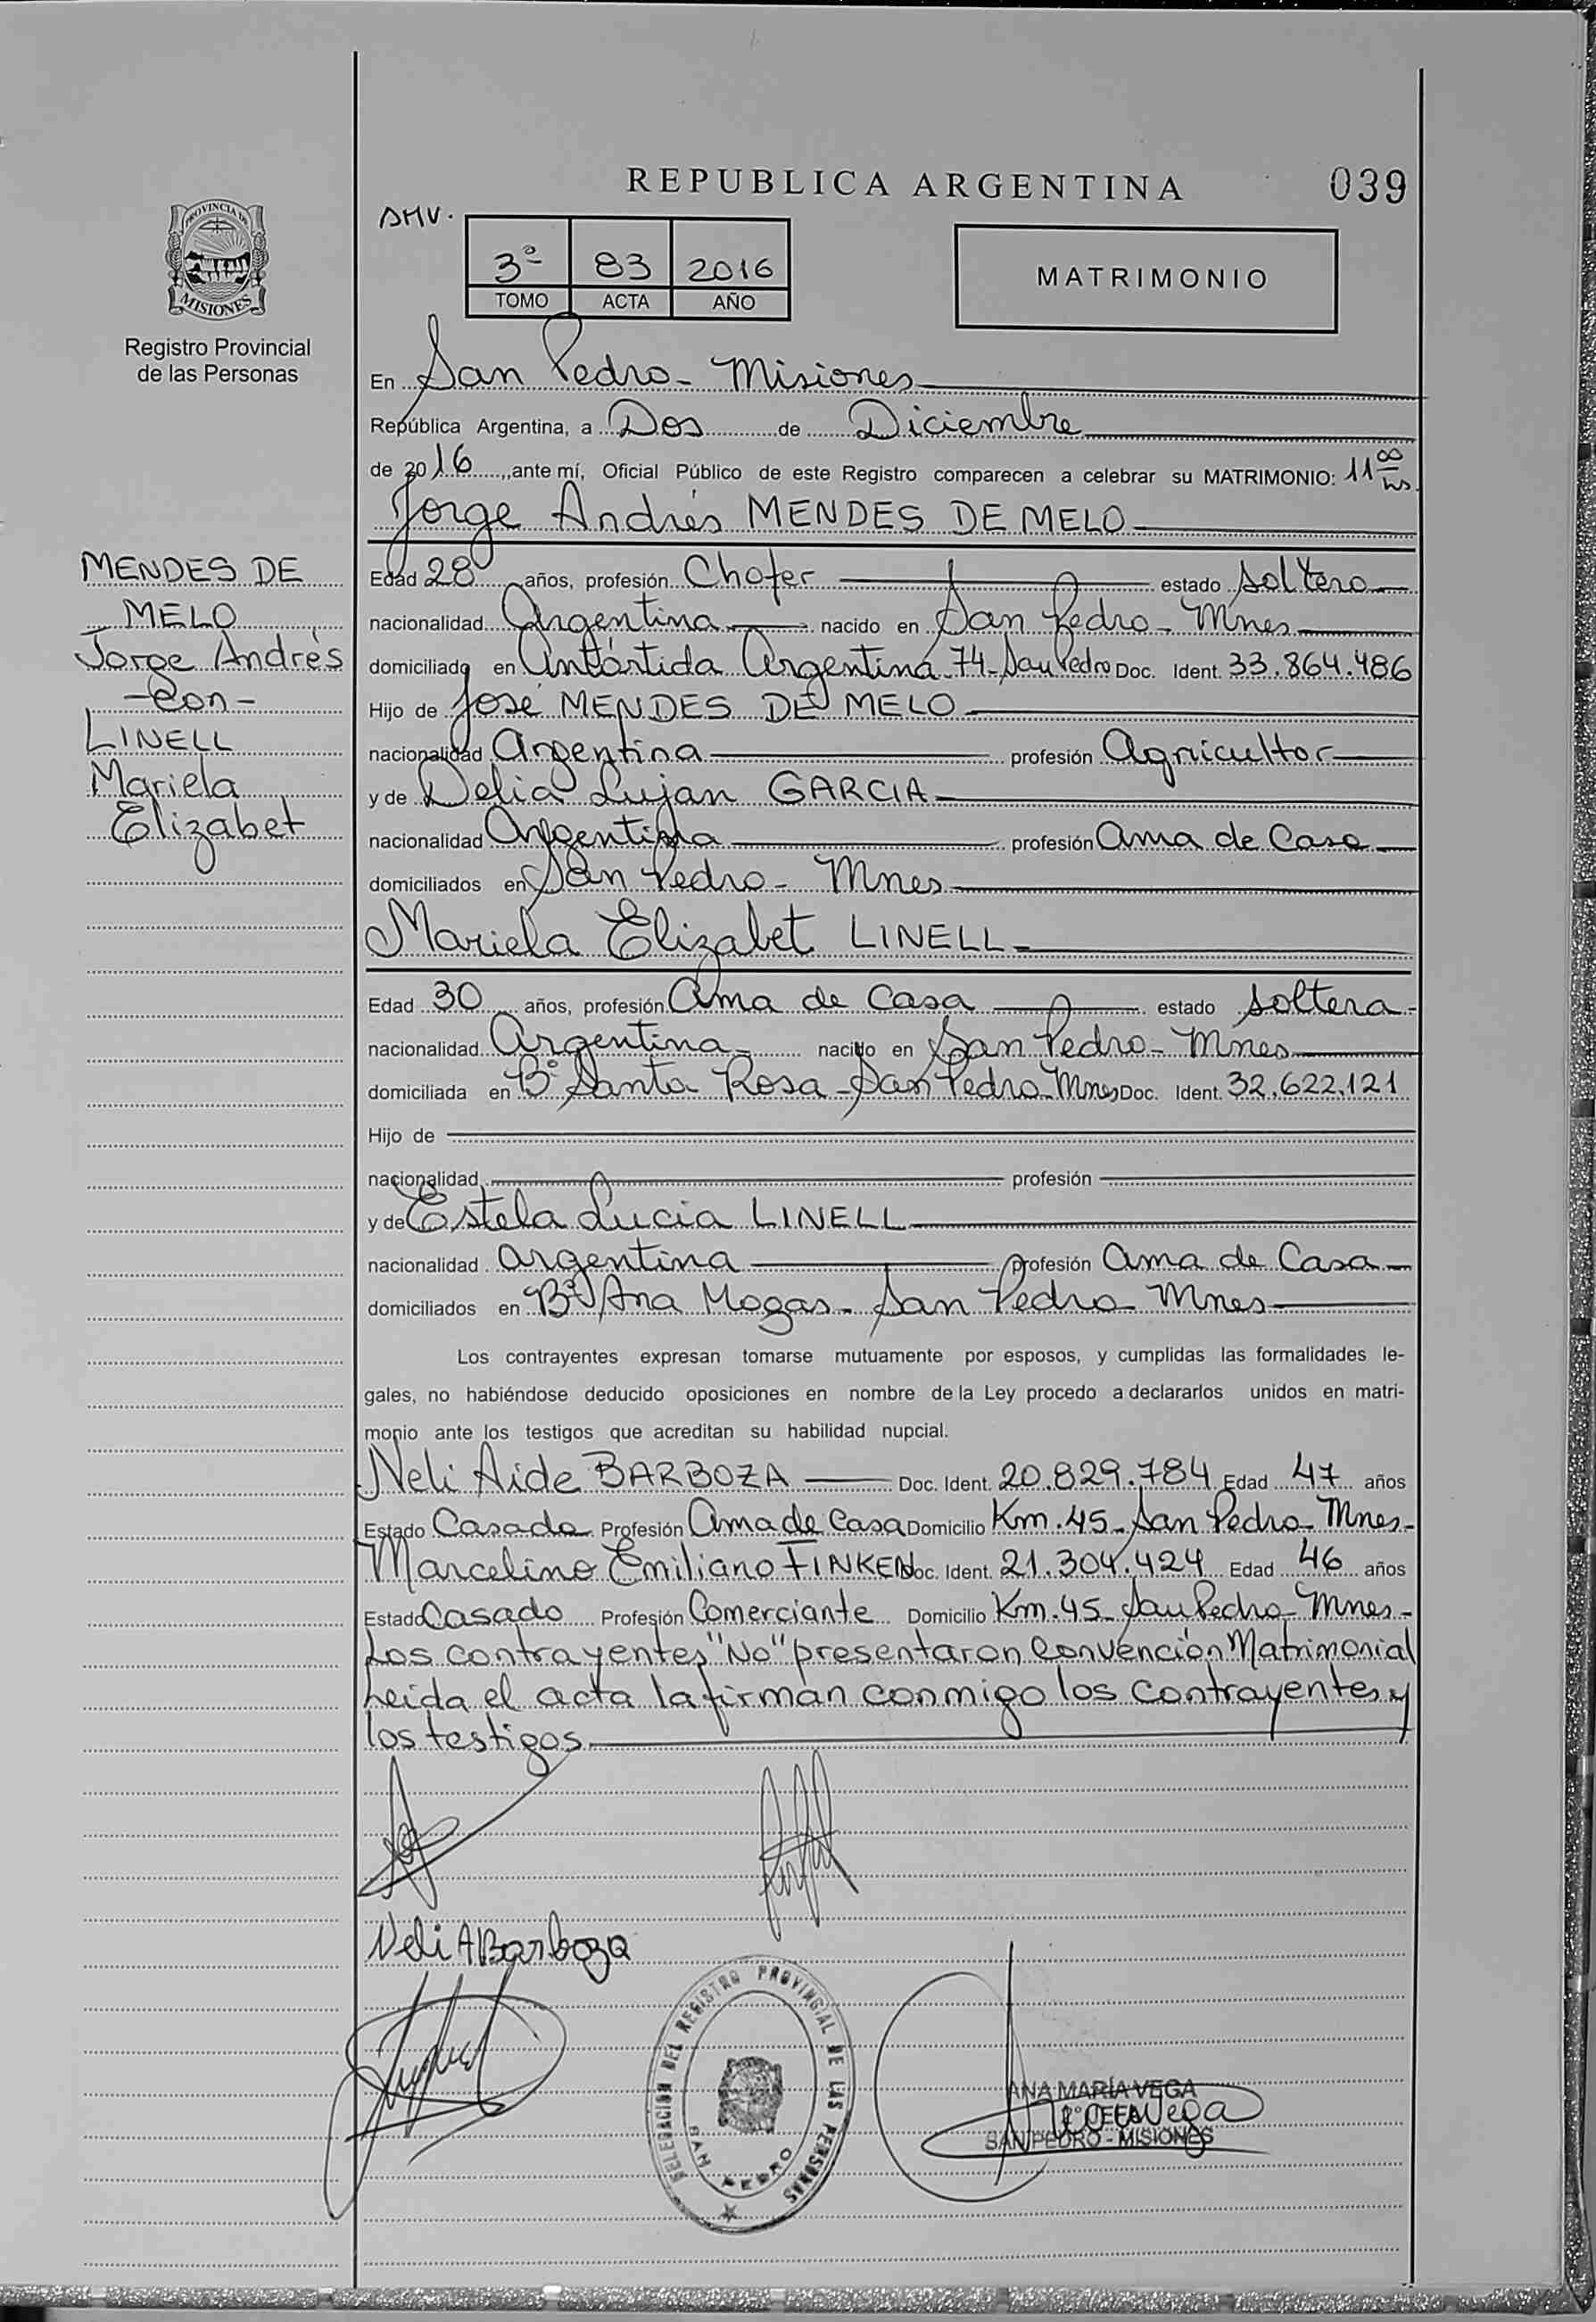 REPUBLICA ARGENTINA 039
AMV.
3ª 83 2016
TOMO ACTA AÑO
MATRIMONIO
PROVINCIA DE
MISIONES
Registro Provincial
de las Personas
MENDES DE
MELO
Jorge Andrés
-Con-
LINELL
Mariela
Elizabet
En San Pedro- Misiones
República Argentina, a Dos de Diciembre
de 2016, ante mí, Oficial Público de este Registro comparecen a celebrar su MATRIMONIO: 11 00 hs.
Jorge Andrés MENDES DE MELO
Edad 28 años, profesión Chofer estado soltero
nacionalidad Argentina nacido en San Pedro- Mnes
domiciliado en Antártida Argentina 74- San Pedro Doc. Ident. 33.864.486
Hijo de José MENDES DE MELO
nacionalidad Argentina profesión Agricultor
y de Delia Lujan GARCIA
nacionalidad Argentina profesión Ama de Casa
domiciliados en San Pedro- Mnes
Mariela Elizabet LINELL
Edad 30 años, profesión Ama de Casa estado soltera
nacionalidad Argentina nacido en San Pedro- Mnes
domiciliada en Bº Santa Rosa- San Pedro- Mnes Doc. Ident. 32.622.121
Hijo de
nacionalidad profesión
y de Estela Lucia LINELL
nacionalidad Argentina profesión Ama de Casa
domiciliados en Bº Ana Mogas- San Pedro Mnes
Los contrayentes expresan tomarse mutuamente por esposos, y cumplidas las formalidades le-
gales, no habiéndose deducido oposiciones en nombre de la Ley procedo a declararlos unidos en matri-
monio ante los testigos que acreditan su habilidad nupcial.
Neli Aide BARBOZA Doc. Ident. 20.829.784 Edad 47 años
Estado Casada Profesión Ama de Casa Domicilio Km. 45- San Pedro- Mnes-
Marcelino Emiliano FINKEN Doc. Ident. 21.304.424 Edad 46 años
Estado Casado Profesión Comerciante Domicilio Km. 45- San Pedro- Mnes-
Los contrayentes "No" presentaron Convención Matrimonial
Leida el acta la firman conmigo los contrayentes y
los testigos.
Neli A Barboza
DELEGACION DEL REGISTRO PROVINCIAL DE LAS PERSONAS
SAN PEDRO
ANA MARÍA VEGA
SAN PEDRO - MISIONES